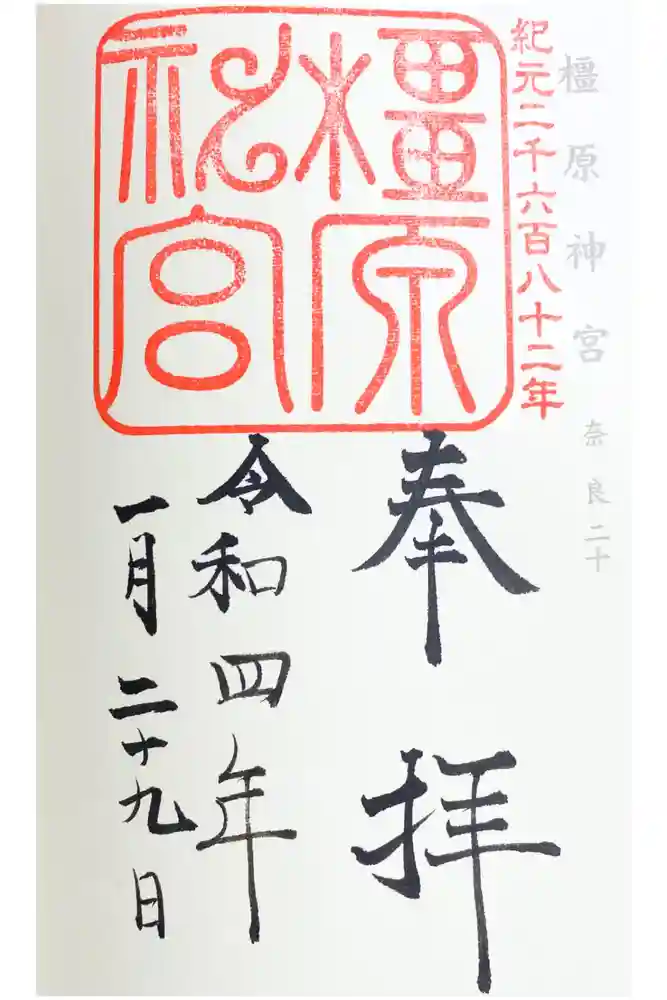 橿原神宮 奈良二十
紀元二千六百八十二年
橿原神宮
奉拝
令和四年
一月二十九日